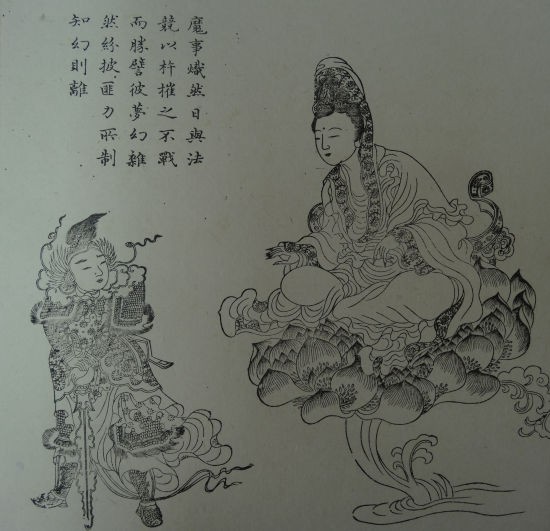 魔事熾然日與法
競以杵摧之不戰
而勝譬彼夢幻雜
然紛披匪力所制
知幻則離